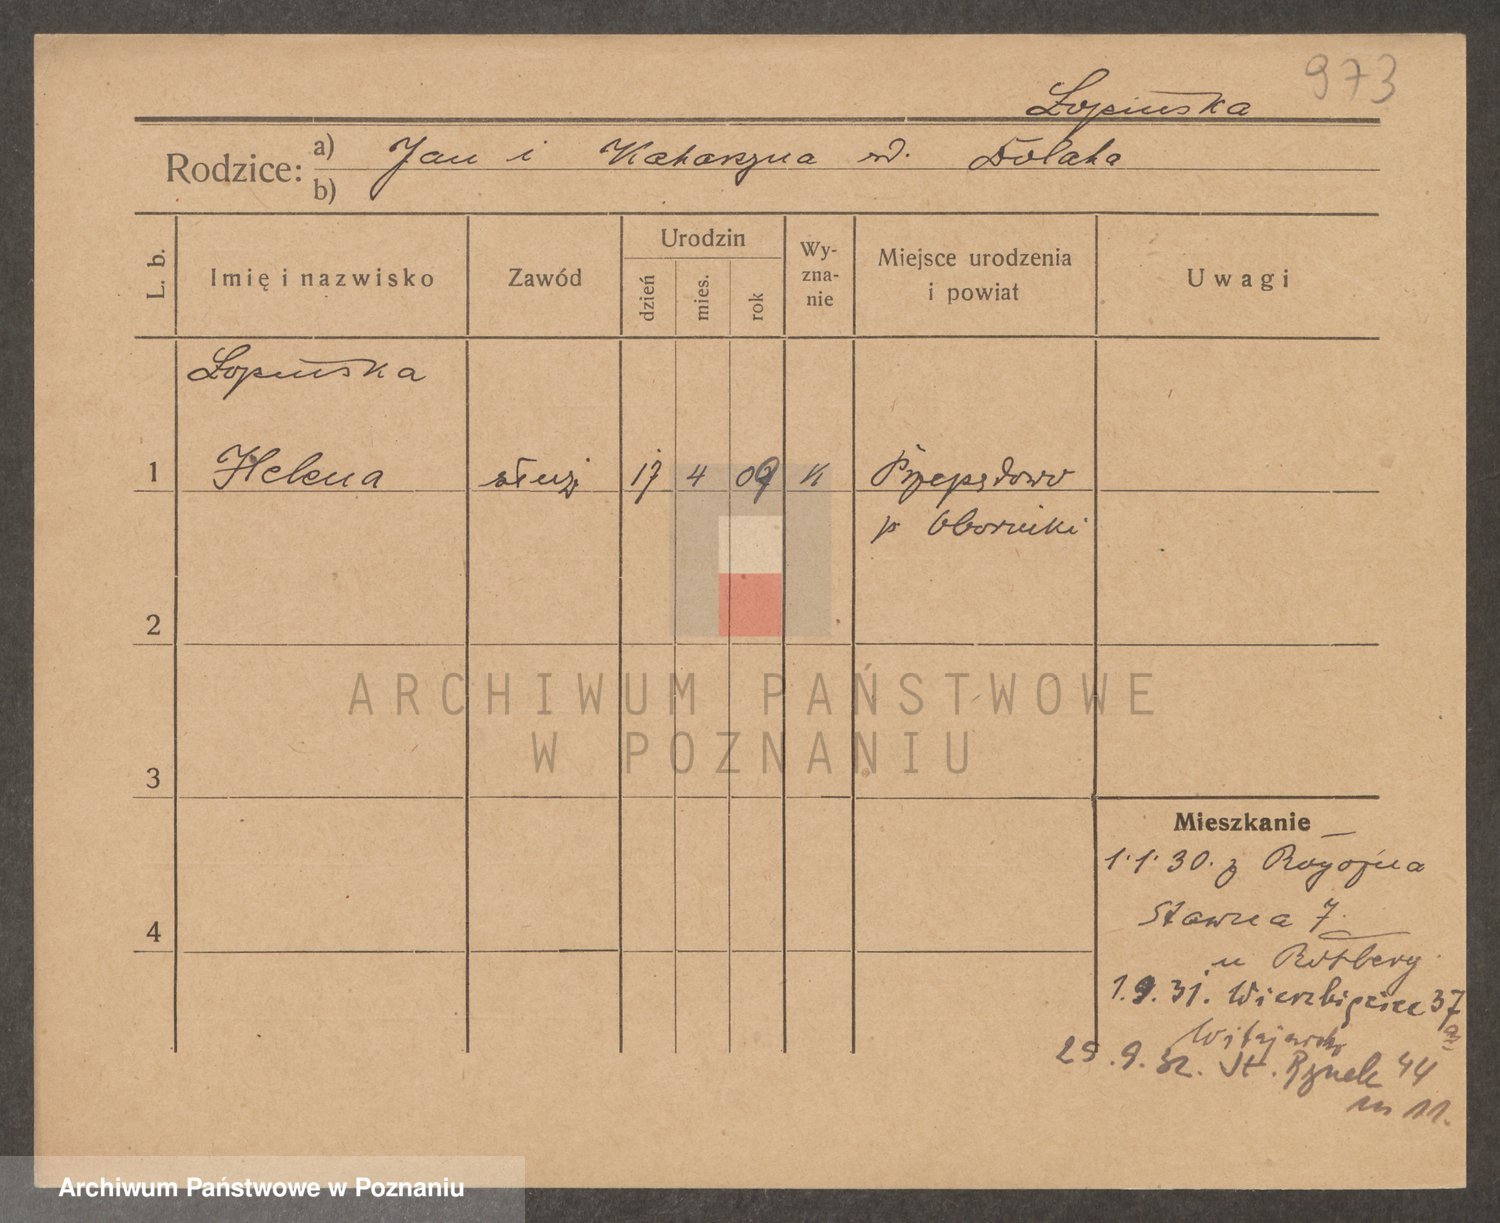 973
Łopińska
Rodzice: a) Jan i Katarzyna
b)
L. b.
Imię i nazwisko
Zawód
Urodzin
dzień
mies.
rok
Wy-
zna-
nie
Miejsce urodzenia
i powiat
Uwagi
Łopińska
1 Helena służ 17 4 09 K Przependowo
p Oborniki
2
3
4
Mieszkanie
1.1.30. z Rogoźna
Stawna 7
u Rotberg
1.9.31. Wierzbięcice 37
29.9.32. St. Rynek 44
m 11.
ARCHIWUM PAŃSTWOWE
W POZNANIU
Archiwum Państwowe w Poznaniu